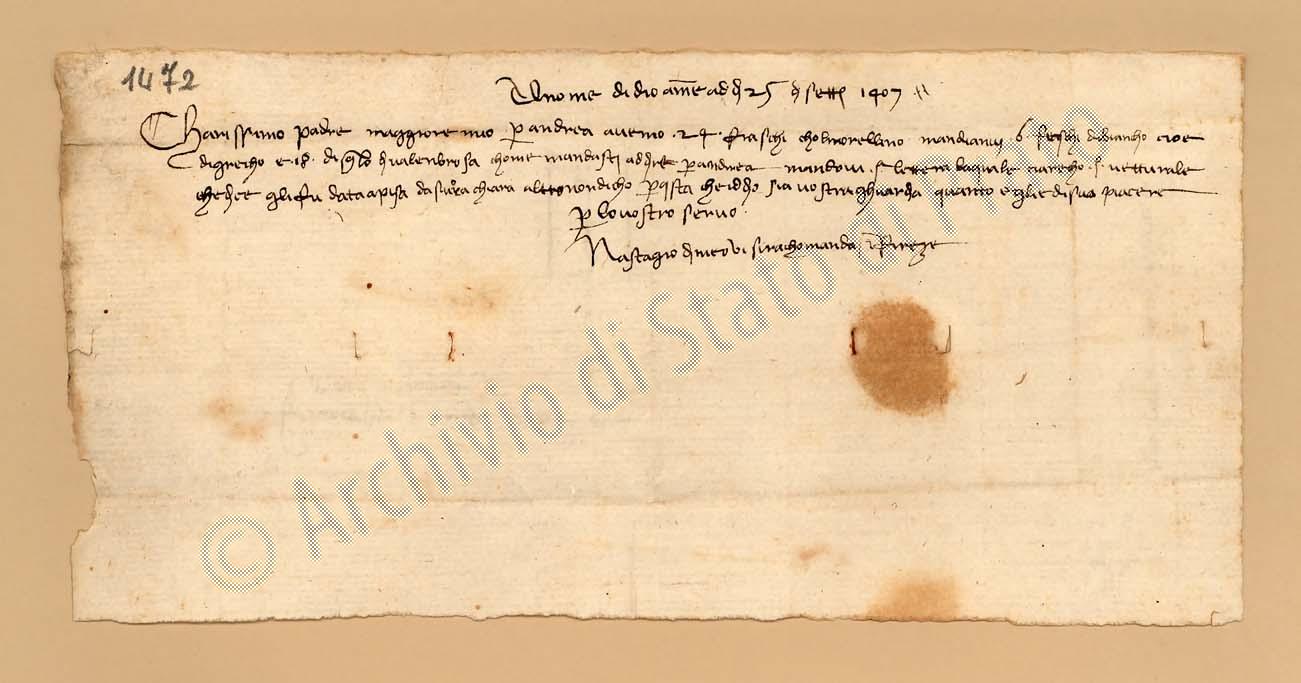 1472
Al nome di dio ame adi 25 di sett 1407
Charissimo padre maggiore mio p andrea avemo 24 fiaschi chol morellino mandianvi 6 fiaschi di biancho cioe
digrecho e 18 di qlo di valenbrosa chome mandasti a dire p andrea mandovi 1 lettera la quale ci arecho 1 vetturale
che dice gli fu data a pisa da suora chiara altro non dicho p qsta che iddio sia vostra ghuardia quanto e glie di suo piacere
p lo vostro servo
Nastagio vi si rachomanda Firenze
© Archivio di Stato di